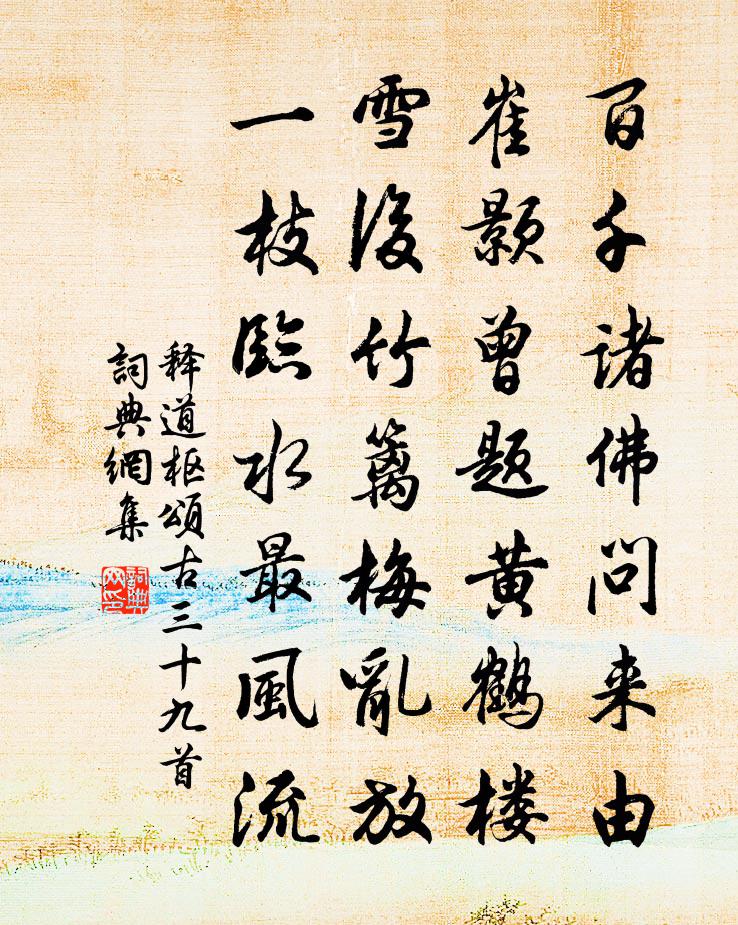 百千诸佛问来由
崔颢曾题黄鹤楼
雪後竹篱梅亂放
一枝臨水最風流
释道枢頌古三十九首
詞典網集